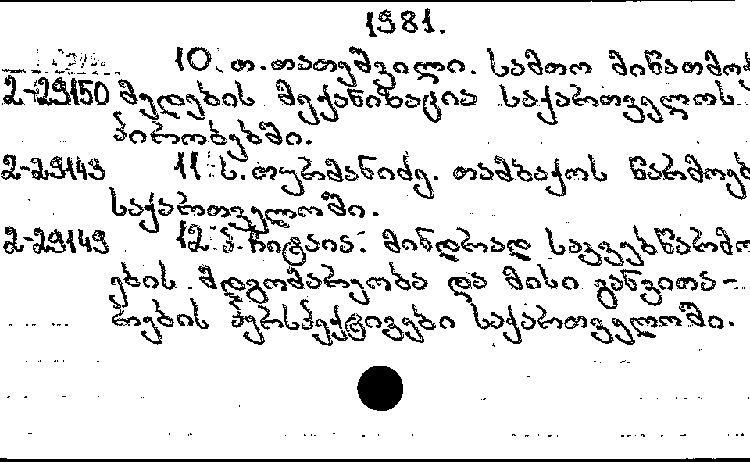 1981.
10. თ. თათეშვილი. სამთო მიწათმოქ
2-29150 მედების მექანიზაცია საქართველოს
პირობებში.
2-29143 11. ს. თურმანიძე. თამბაქოს წარმოებ
საქართველოში.
2-29149 12. პ. ჩიტაია. მინდვრად საკვებწარმო
ების მდგომარეობა და მისი განვითა-
რების პერსპექტივები საქართველოში.